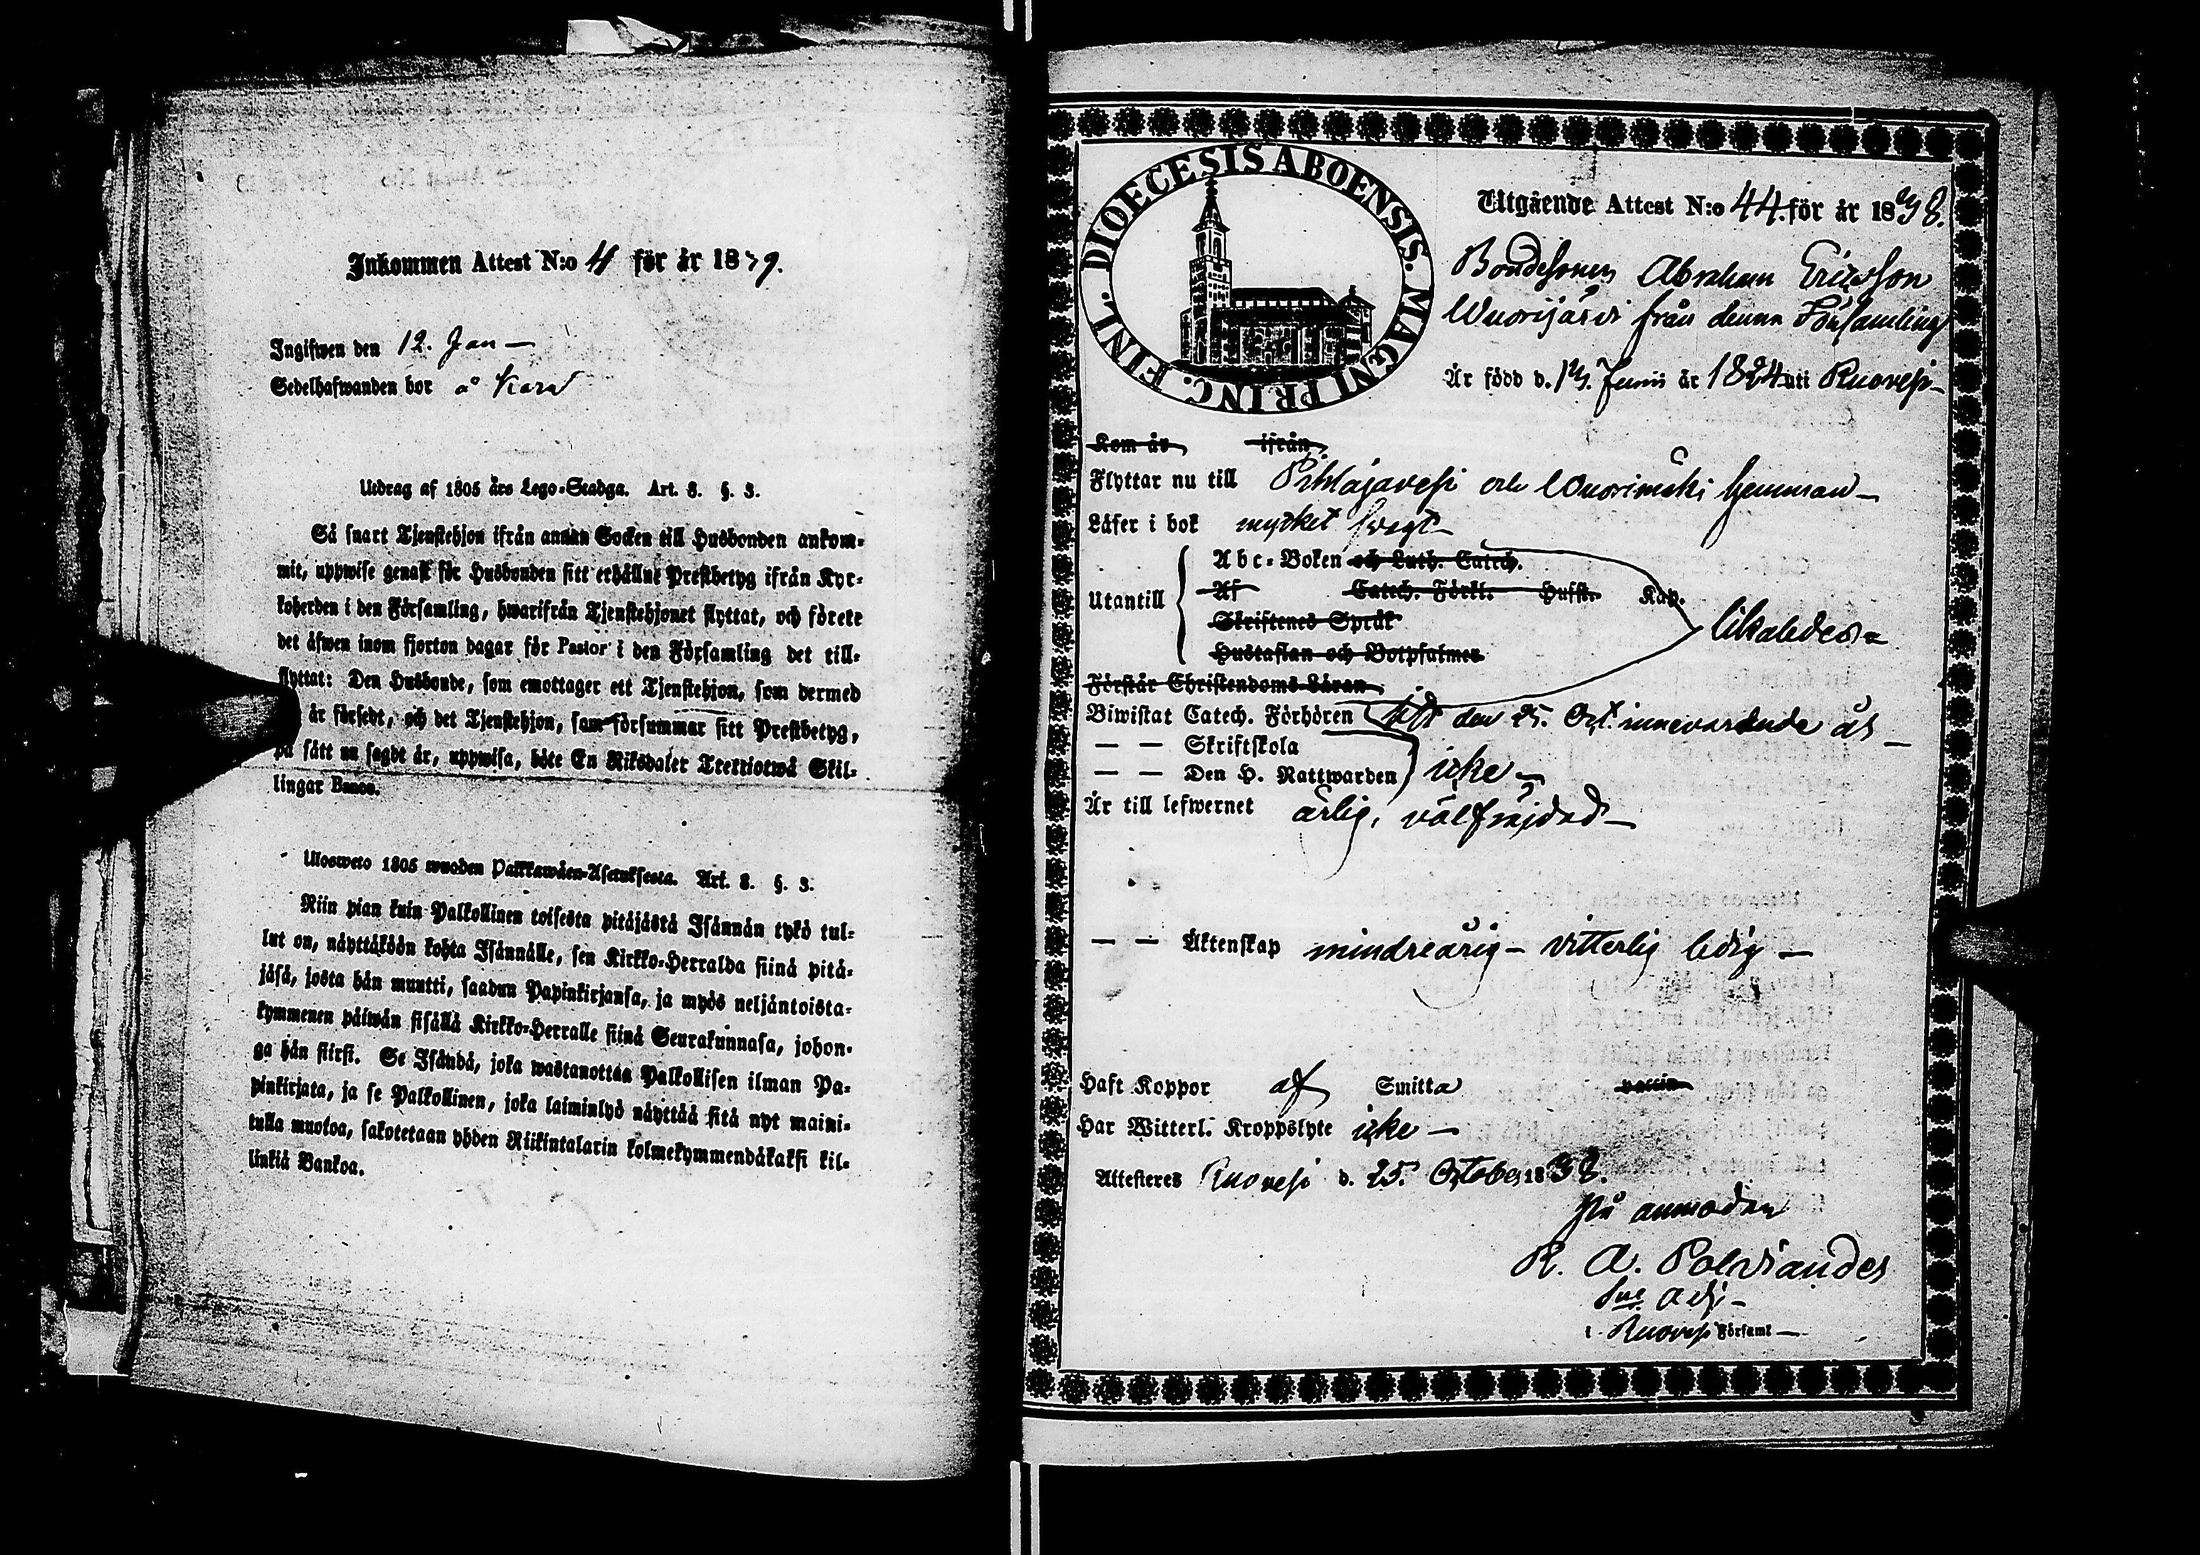 Inkommen Attest N:o 4 för år 1839.
Ingifwen den 12. Jan
Sedelhafwanden bor å
Utdrag af 1805 års Lego-Stadga. Art. 8. §. 3.
Så snart Tjenstehjon ifrån annan Socken till Husbonden ankom-
mit, uppwise genast för Husbonden sitt erhållne Prestbetyg ifrån Kyr-
koherden i den Församling, hwarifrån Tjenstehjonet flyttat, och förete
det åfwen inom fjorton dagar för Pastor i den Församling det till-
flyttat: Den Husbonde, som emottager ett Tjenstehjon, som dermed
är försedt, och det Tjenstehjon, som försummar sitt Prestbetyg,
på sätt nu sagdt är, uppwisa, böte En Riksdaler Trettiotwå Skil-
lingar Banco.
Uloswето 1805 wuoden Palkkawäen-Asetuksesta. Art. 8. §. 3.
Niin pian kuin Palkollinen toisesta pitäjästä Isännän tykö tul-
lut on, näyttäköön kohta Isännälle, sen Kirkko-Herralda siinä pitä-
jäsä, josta hän muutti, saadun Papinkirjansa, ja myös neljäntoista-
kymmenen päiwän sisällä Kirkko-Herralle siinä Seurakunnasa, johon-
ga hän siirsi. Se Isändä, joka wastanottaa Palkollisen ilman Pa-
pinkirjata, ja se Palkollinen, joka laiminlyö näyttää sitä nyt maini-
tulla muotoa, sakotetaan yhden Riikintalarin kolmekymmendäkaksi kil-
linkiä Bankoa.
DIOECESIS ABOENSIS. MAGNI PRINC. FINL.
Utgående Attest N:o 44. för år 1838.
Bondesonen Abraham Ericsson
Wuorijärvi från denna Församling
Är född d. Junii år 1824 uti Ruovesi
Kom år ifrån
Flyttar nu till Pihlajavesi och Wuorimäki hemman
Läser i bok mycket swagt
Abc-Boken och Luth. Catech.
Utantill Af Catech. Förkl. Hufst. Kap. likaledes
Skriftenes Språk
Hustaflan och Botpsalmer
Förstår Christendoms Läran
Biwistat Catech. Förhören sist den 25. Oct. innevarande år
— — Skriftskola
— — Den H. Nattwarden icke
Är till lefwernet ärlig, välfrejdad
— — Äktenskap mindreårig – vitterlig ledig
Haft Koppor af Smitta vaccin
Har Witterl. Kroppslyte icke
Attesteres Ruovesi d. 25. October 1838.
På anmodan
R. A. Polviander
Sac Adj
i Ruovesi Församl